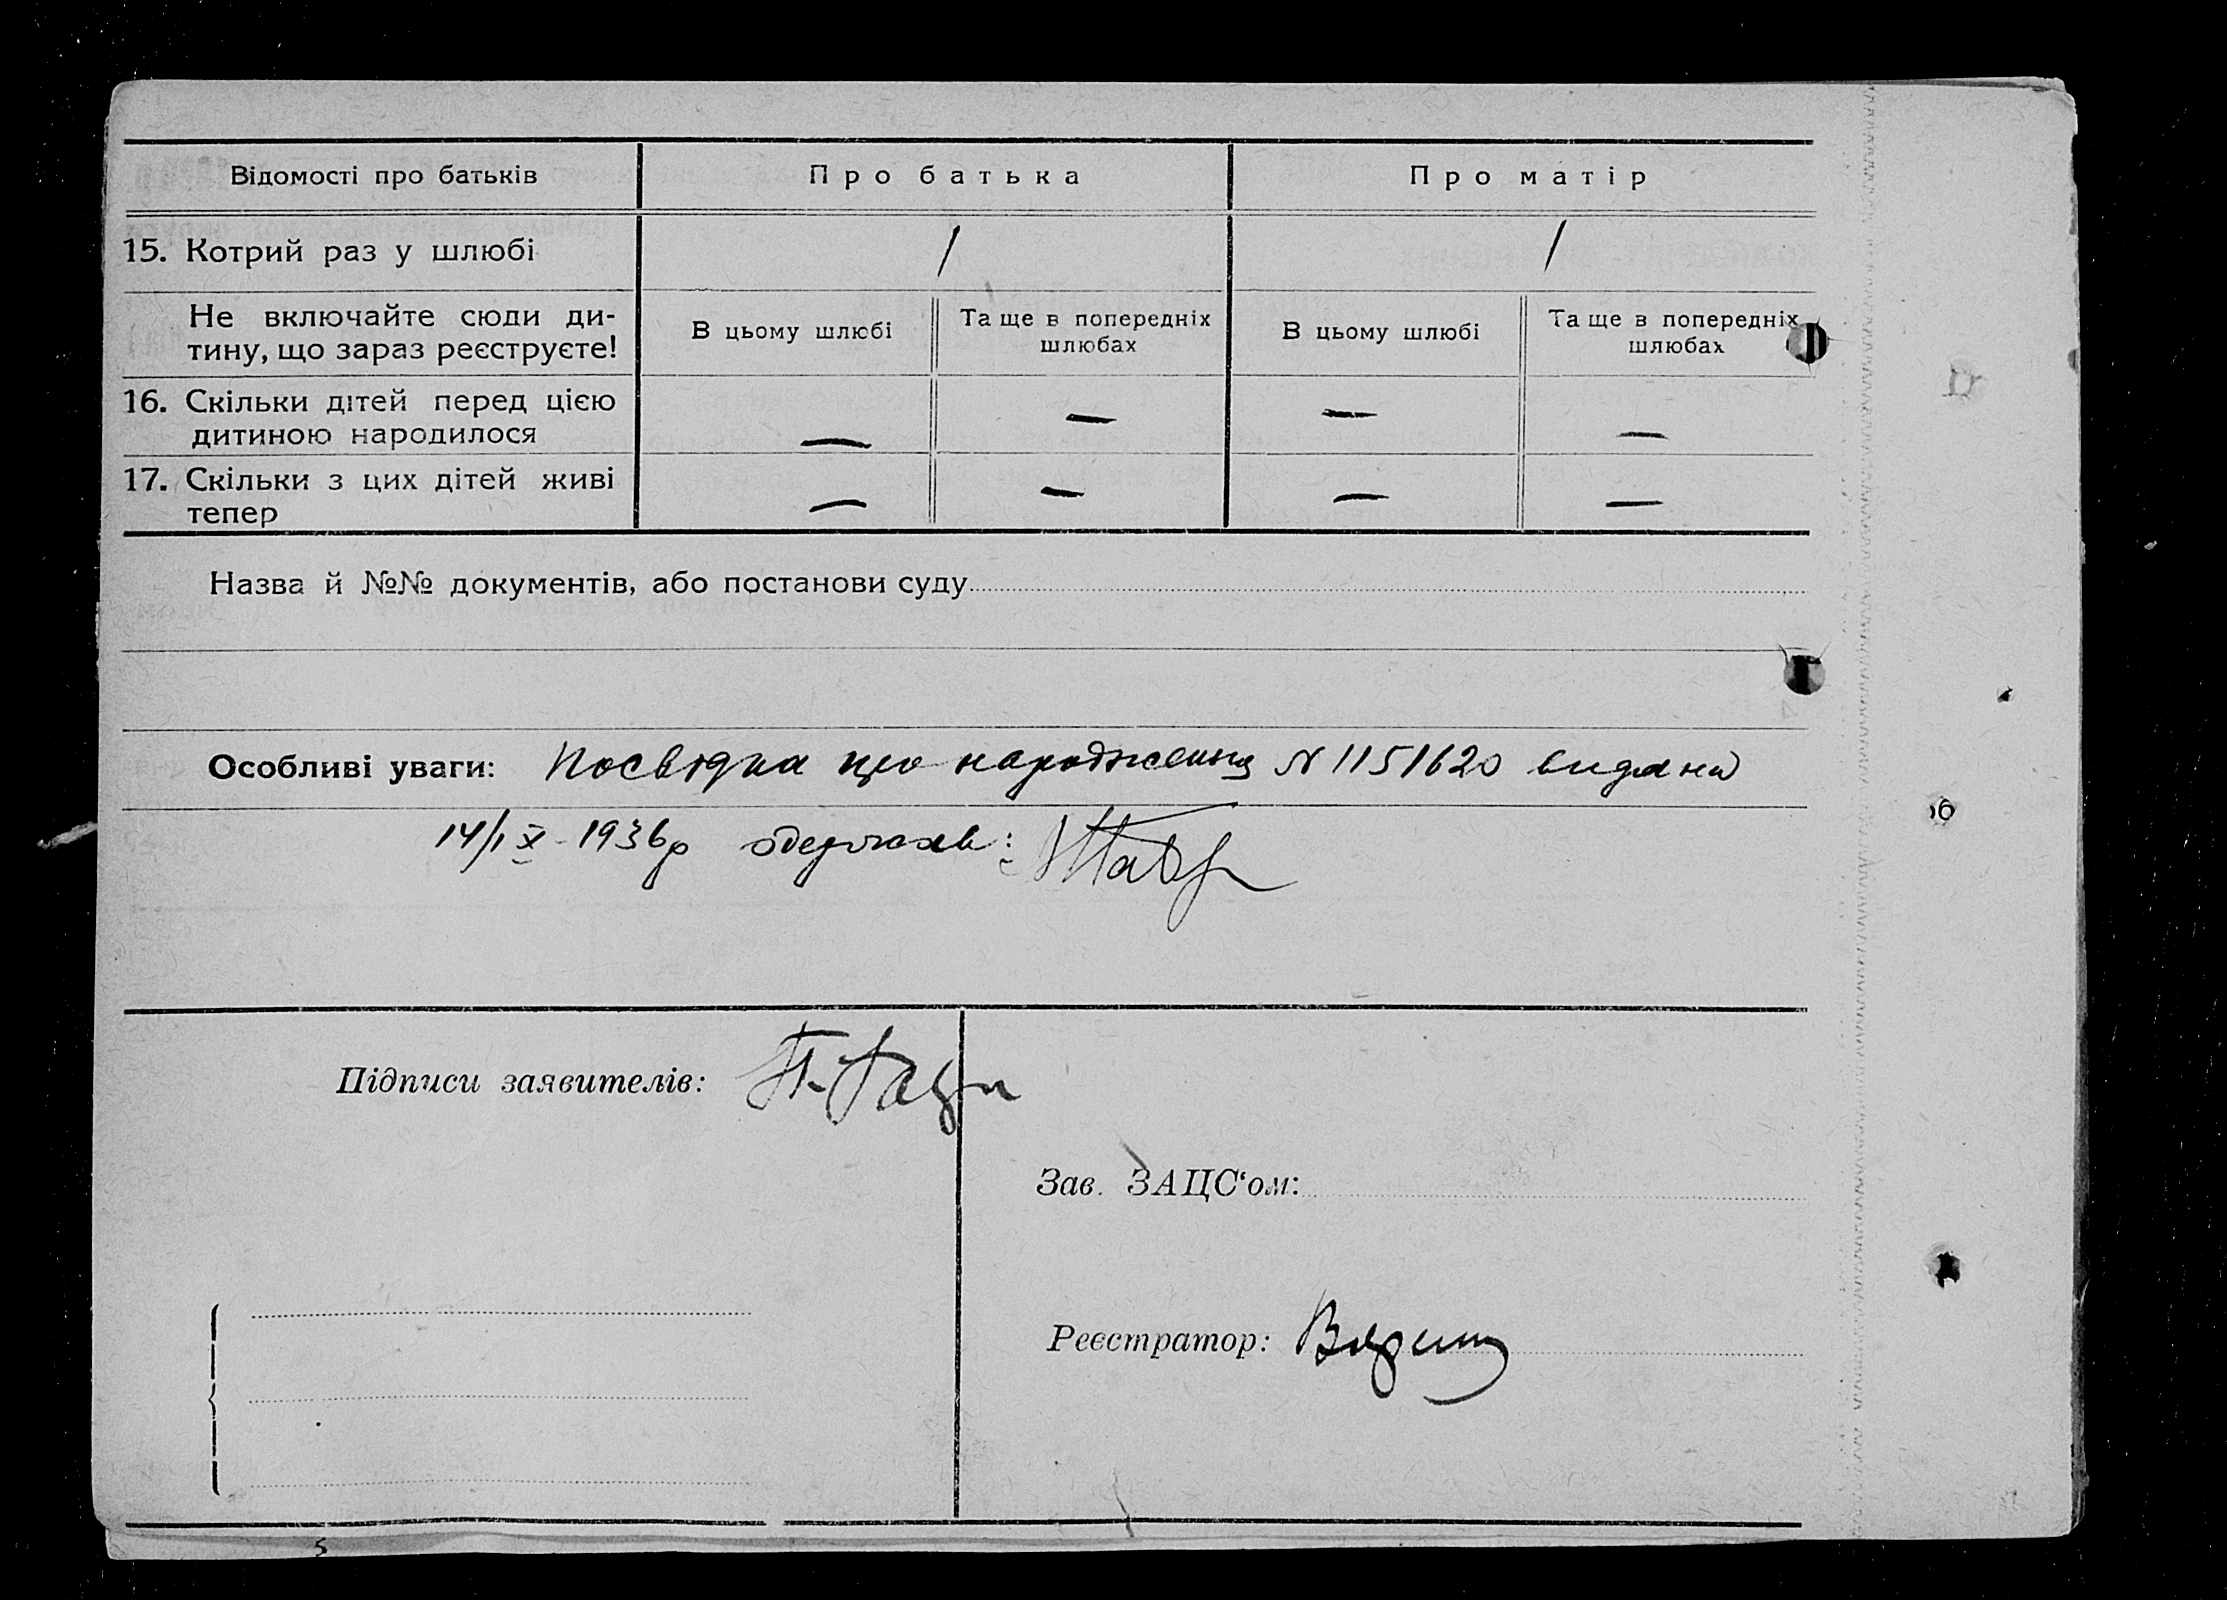 Відомості про батьків Про батька Про матір
15. Котрий раз у шлюбі 1 1
Не включайте сюди ди-
тину, що зараз реєструєте!
В цьому шлюбі
Та ще в попередніх
шлюбах
В цьому шлюбі
Та ще в попередніх
шлюбах
16. Скільки дітей перед цією
дитиною народилося — — — —
17. Скільки з цих дітей живі
тепер — — — —
Назва й №№ документів, або постанови суду
Особливі уваги: Посвідка про народження N 1151620 видана
14/IX - 1936р одержав:
Підписи заявителів:
Зав. ЗАЦС‘ом:
Реєстратор: